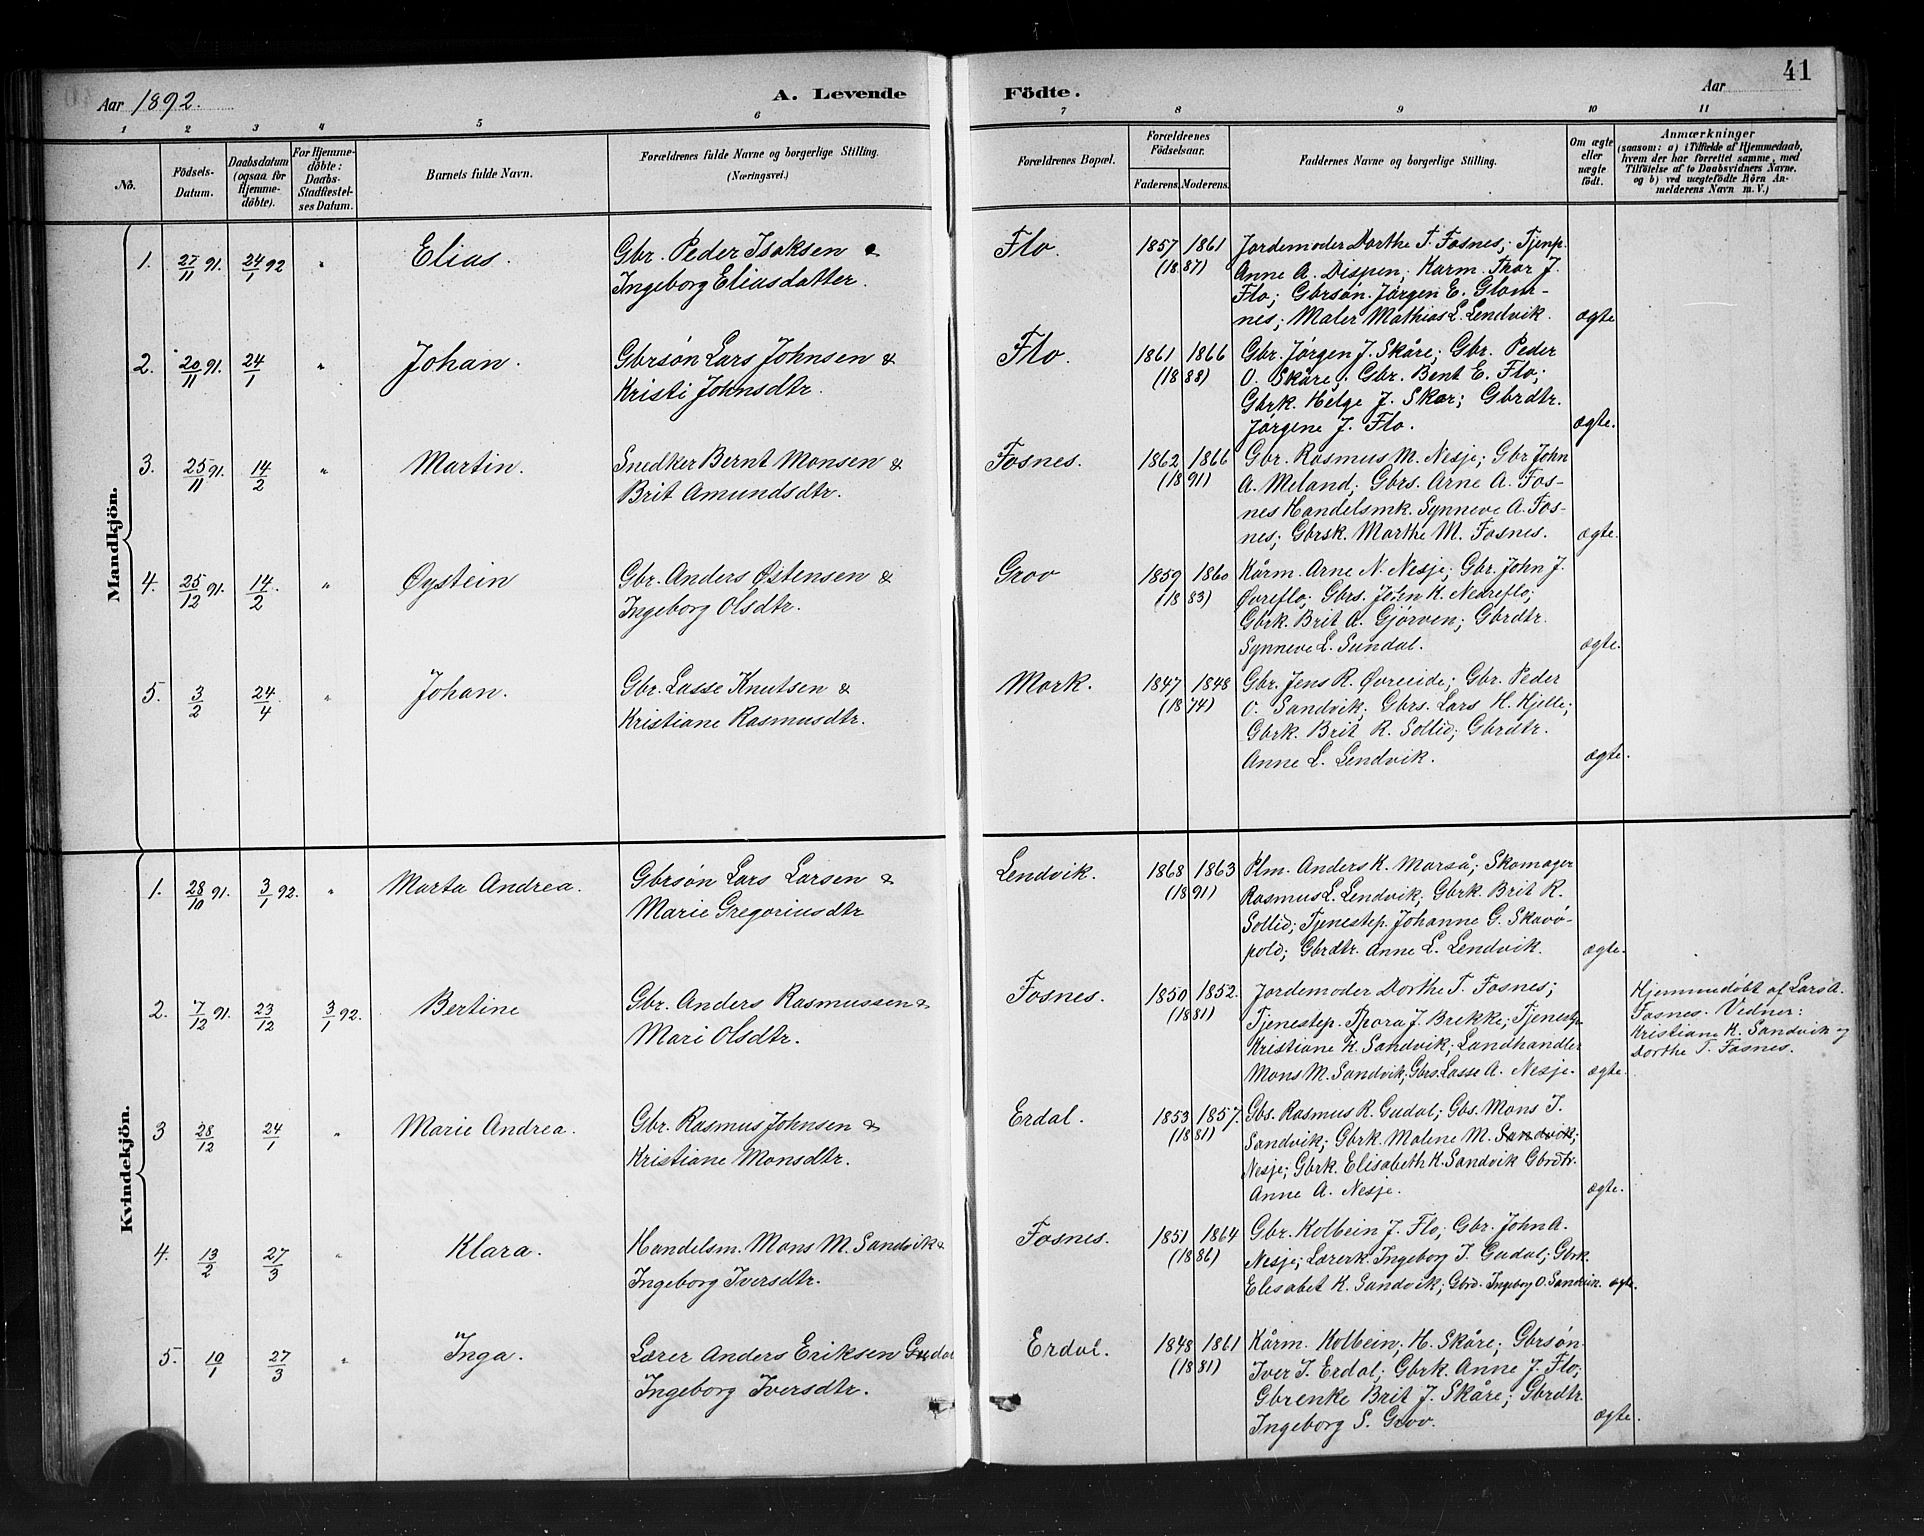 41
Aar 1892.
A. Levende Födte.
Aar
1 2 3 4 5 6 7 8 9 10 11
No.
Födsels-
Datum.
Daabsdatum
(ogsaa for
Hjemme-
döbte).
For Hjemme-
döbte:
Daabs-
Stadfæstel-
ses Datum.
Barnets fulde Navn.
Forældrenes fulde Navne og borgerlige Stilling.
(Næringsvei.)
Forældrenes Bopæl.
Forældrenes
Fødselsaar.
Faderens. Moderens.
Faddernes Navne og borgerlige Stilling.
Om ægte
eller
uægte
født.
Anmærkninger
(saasom: a) i Tilfælde af Hjemmedaab,
hvem der har forrettet samme, med
Tilföielse af to Daabsvidners Navne,
og b) ved uægtefödte Börn An-
melderens Navn m. V.)
Mandkjön.
1. 27/11 91. 24/1 92 " Elias. Gbr. Peder Isaksen &
Ingeborg Eliasdatter.
Flo. 1857 1861
(1887)
Jordemoder Dorthe T. Fosnes; Tjenp.
Anne A. Dispen; Karm. Thor J.
Flo; Gbrsøn. Jørgen E. Glom-
nes; Maler Mathias L. Lendvik. ægte
2. 20/11 91. 24/1 " Johan. Gbrsøn Lars Johnsen &
Kristi Johnsdtr.
Flo. 1861 1866
(1888)
Gbr. Jørgen J. Skåre; Gbr. Peder
O. Skåre; Gbr. Bent E. Flo;
Gbrk. Helge J. Skar; Gbrdtr.
Jørgene J. Flo. ægte.
3. 25/11 91. 14/2 " Martin. Snedker Bernt Monsen &
Brit Amundsdtr.
Fosnes. 1862 1866
(1891)
Gbr. Rasmus M. Nesje; Gbr John
A. Meland; Gbrs. Arne A. Fos-
nes Handelsmk. Synneve A. Fos-
nes; Gbrsk. Marthe M. Fosnes. ægte.
4. 25/12 91. 14/2 " Øystein Gbr. Anders Østensen &
Ingeborg Olsdtr.
Grov 1859 1860
(1883)
Kårm. Arne N. Nesje; Gbr. John J.
Øvreflo; Gbrs. John K. Nedreflo;
Gbrk. Brit A. Gjørven; Gbrdtr.
Synneve L. Sundal. ægte.
5. 3/2 24/4 " Johan. Gbr. Lasse Knutsen &
Kristiane Rasmusdtr.
Mork. 1847 1848
(1874)
Gbr. Jens R. Øvreeide; Gbr. Peder
O. Sandvik; Gbrs. Lars H. Hjelle;
Gbrk. Brit R. Sollid; Gbrdtr.
Anne L. Lendvik. ægte.
Kvindekjön.
1. 28/10 91. 3/1 92. " Marta Andrea. Gbrsøn Lars Larsen &
Marie Gregoriusdtr
Lendvik. 1868 1863
(1891)
Plm. Anders K. Marså; Skomager
Rasmus L. Lendvik; Gbrk. Brit R.
Sollid; Tjenestep. Johanne G. Skavö-
pold; Gbrdtr. Anne L. Lendvik. ægte.
2. 7/12 91. 23/12 3/1 92. Bertine Gbr. Anders Rasmussen &
Mari Olsdtr.
Fosnes. 1850 1852.
(1881)
Jordemoder Dorthe T. Fosnes;
Tjenestep. Thora J. Brekke; Tjenestp.
Kristiane K. Sandvik; Landhandler
Mons M. Sandvik; Gbrs. Lasse A. Nesje. ægte.
Hjemmedøbt af Lars A.
Fosnes. Vidner:
Kristiane K. Sandvik og
Dorthe T. Fosnes.
3 28/12 24/1 " Marie Andrea. Gbr. Rasmus Johnsen &
Kristiane Monsdtr.
Erdal. 1853 1857.
(1881)
Gbs. Rasmus R. Gudal; Gbs. Mons I.
Sandvik; Gbrk. Malene M. Sandvik;
Nesje; Gbrk. Elisabeth K. Sandvik Gbrdtr.
Anne A. Nesje. ægte.
4. 13/2 27/3 " Klara. Handelsm. Mons M. Sandvik &
Ingeborg Iversdtr.
Fosnes. 1851 1864
(1886)
Gbr. Kolbein J. Flo; Gbr. John A.
Nesje; Lærerk. Ingeborg I. Gudal; Gbrk.
Elisabet K. Sandvik; Gbrd. Ingeborg O. Sandvik. ægte.
5. 10/1 27/3 " Inga. Lærer Anders Eriksen Gudal
Ingeborg Iversdtr.
Erdal. 1848 1861
(1881)
Kårm. Kolbein H. Skåre; Gbrsøn
Iver I. Erdal; Gbrk. Anne J. Flo;
Gbrenke Brit J. Skåre; Gbrdtr.
Ingeborg S. Grov. ægte.